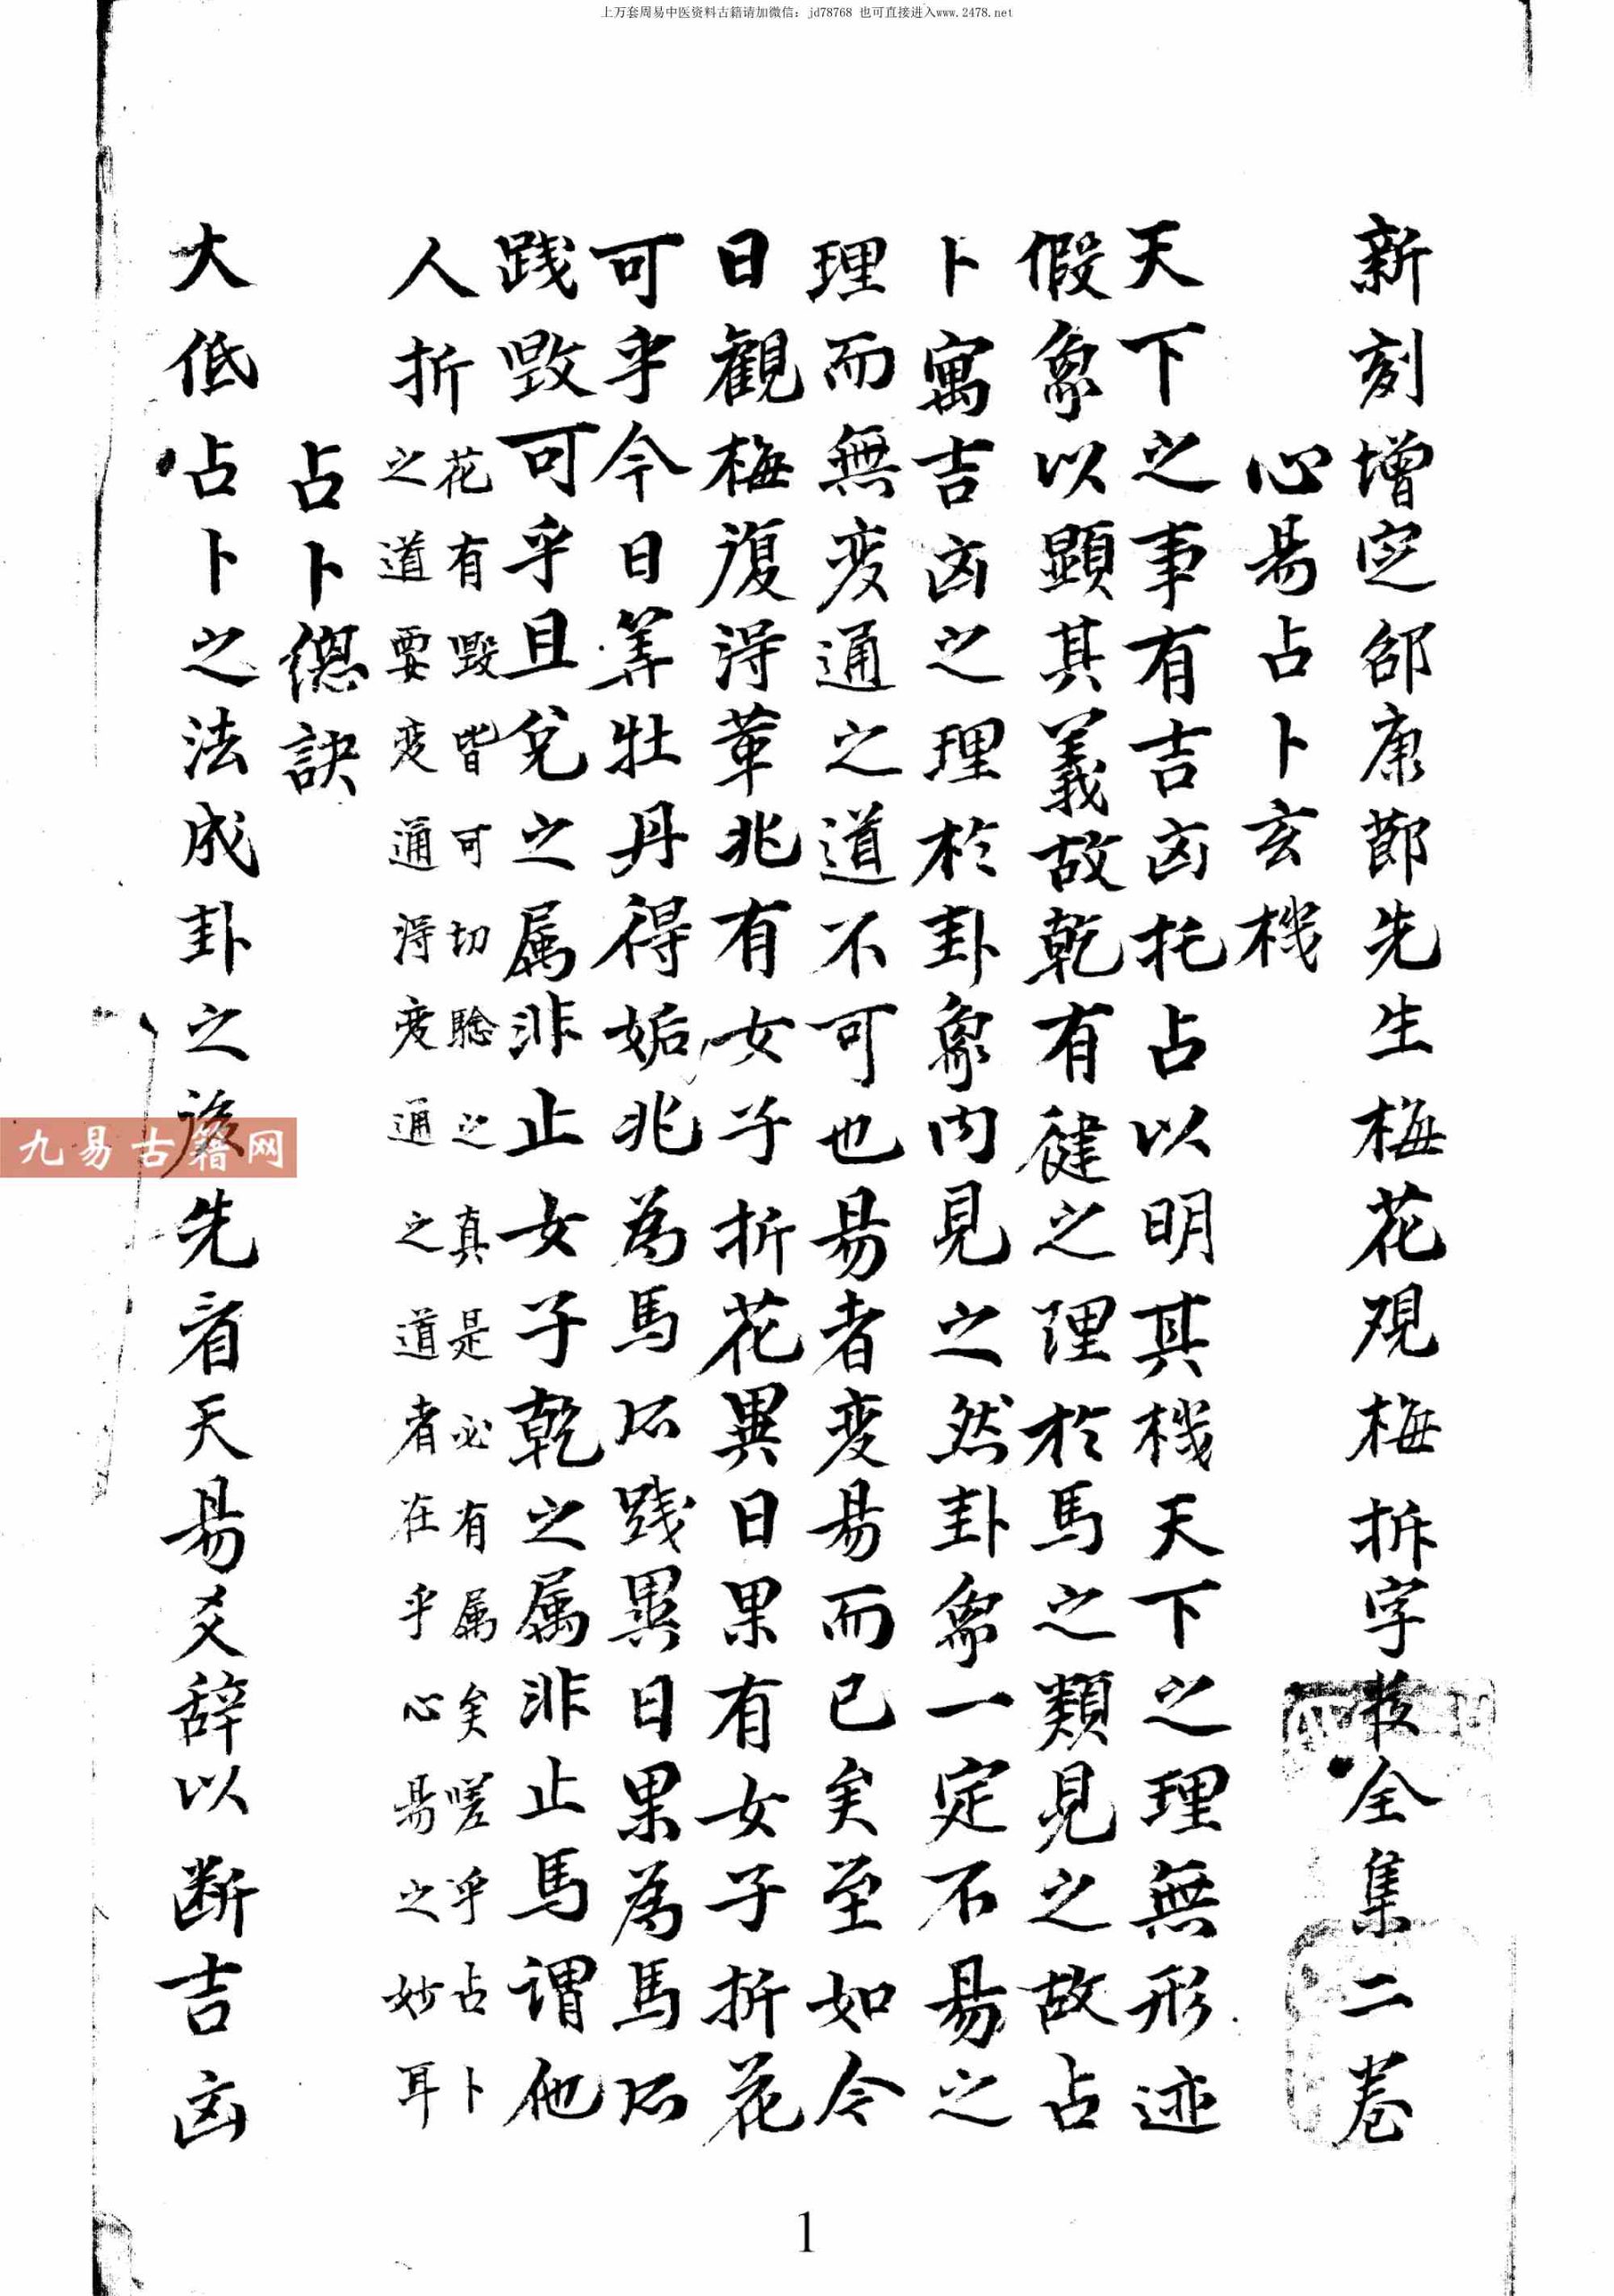 上万套周易中医资料古籍请加微信：jd78768 也可直接进入www.2478.net
新刻增定邵康節先生梅花观梅拆字数全集二卷
心易占卜玄機
天下之事有吉凶托占以明其機天下之理無形迹
假象以顯其義故乾有健之理於馬之類見之故占
卜寓吉凶之理於卦象内見之然卦象一定不易之
理而無变通之道不可也易者変易而已矣至如今
日觀梅復得革兆有女子折花異日果有女子折花
可乎今日筭牡丹得姤兆為馬所践異日果為馬所
践毀可乎且兌之属非止女子乾之属非止馬謂他
人折花有毀皆可切驗之真是必有属矣嗟乎占卜
之道要变通得变通之道者在乎心易之妙耳
占卜總訣
大低占卜之法成卦之後先看天易爻辞以断吉凶
九易古籍网
1